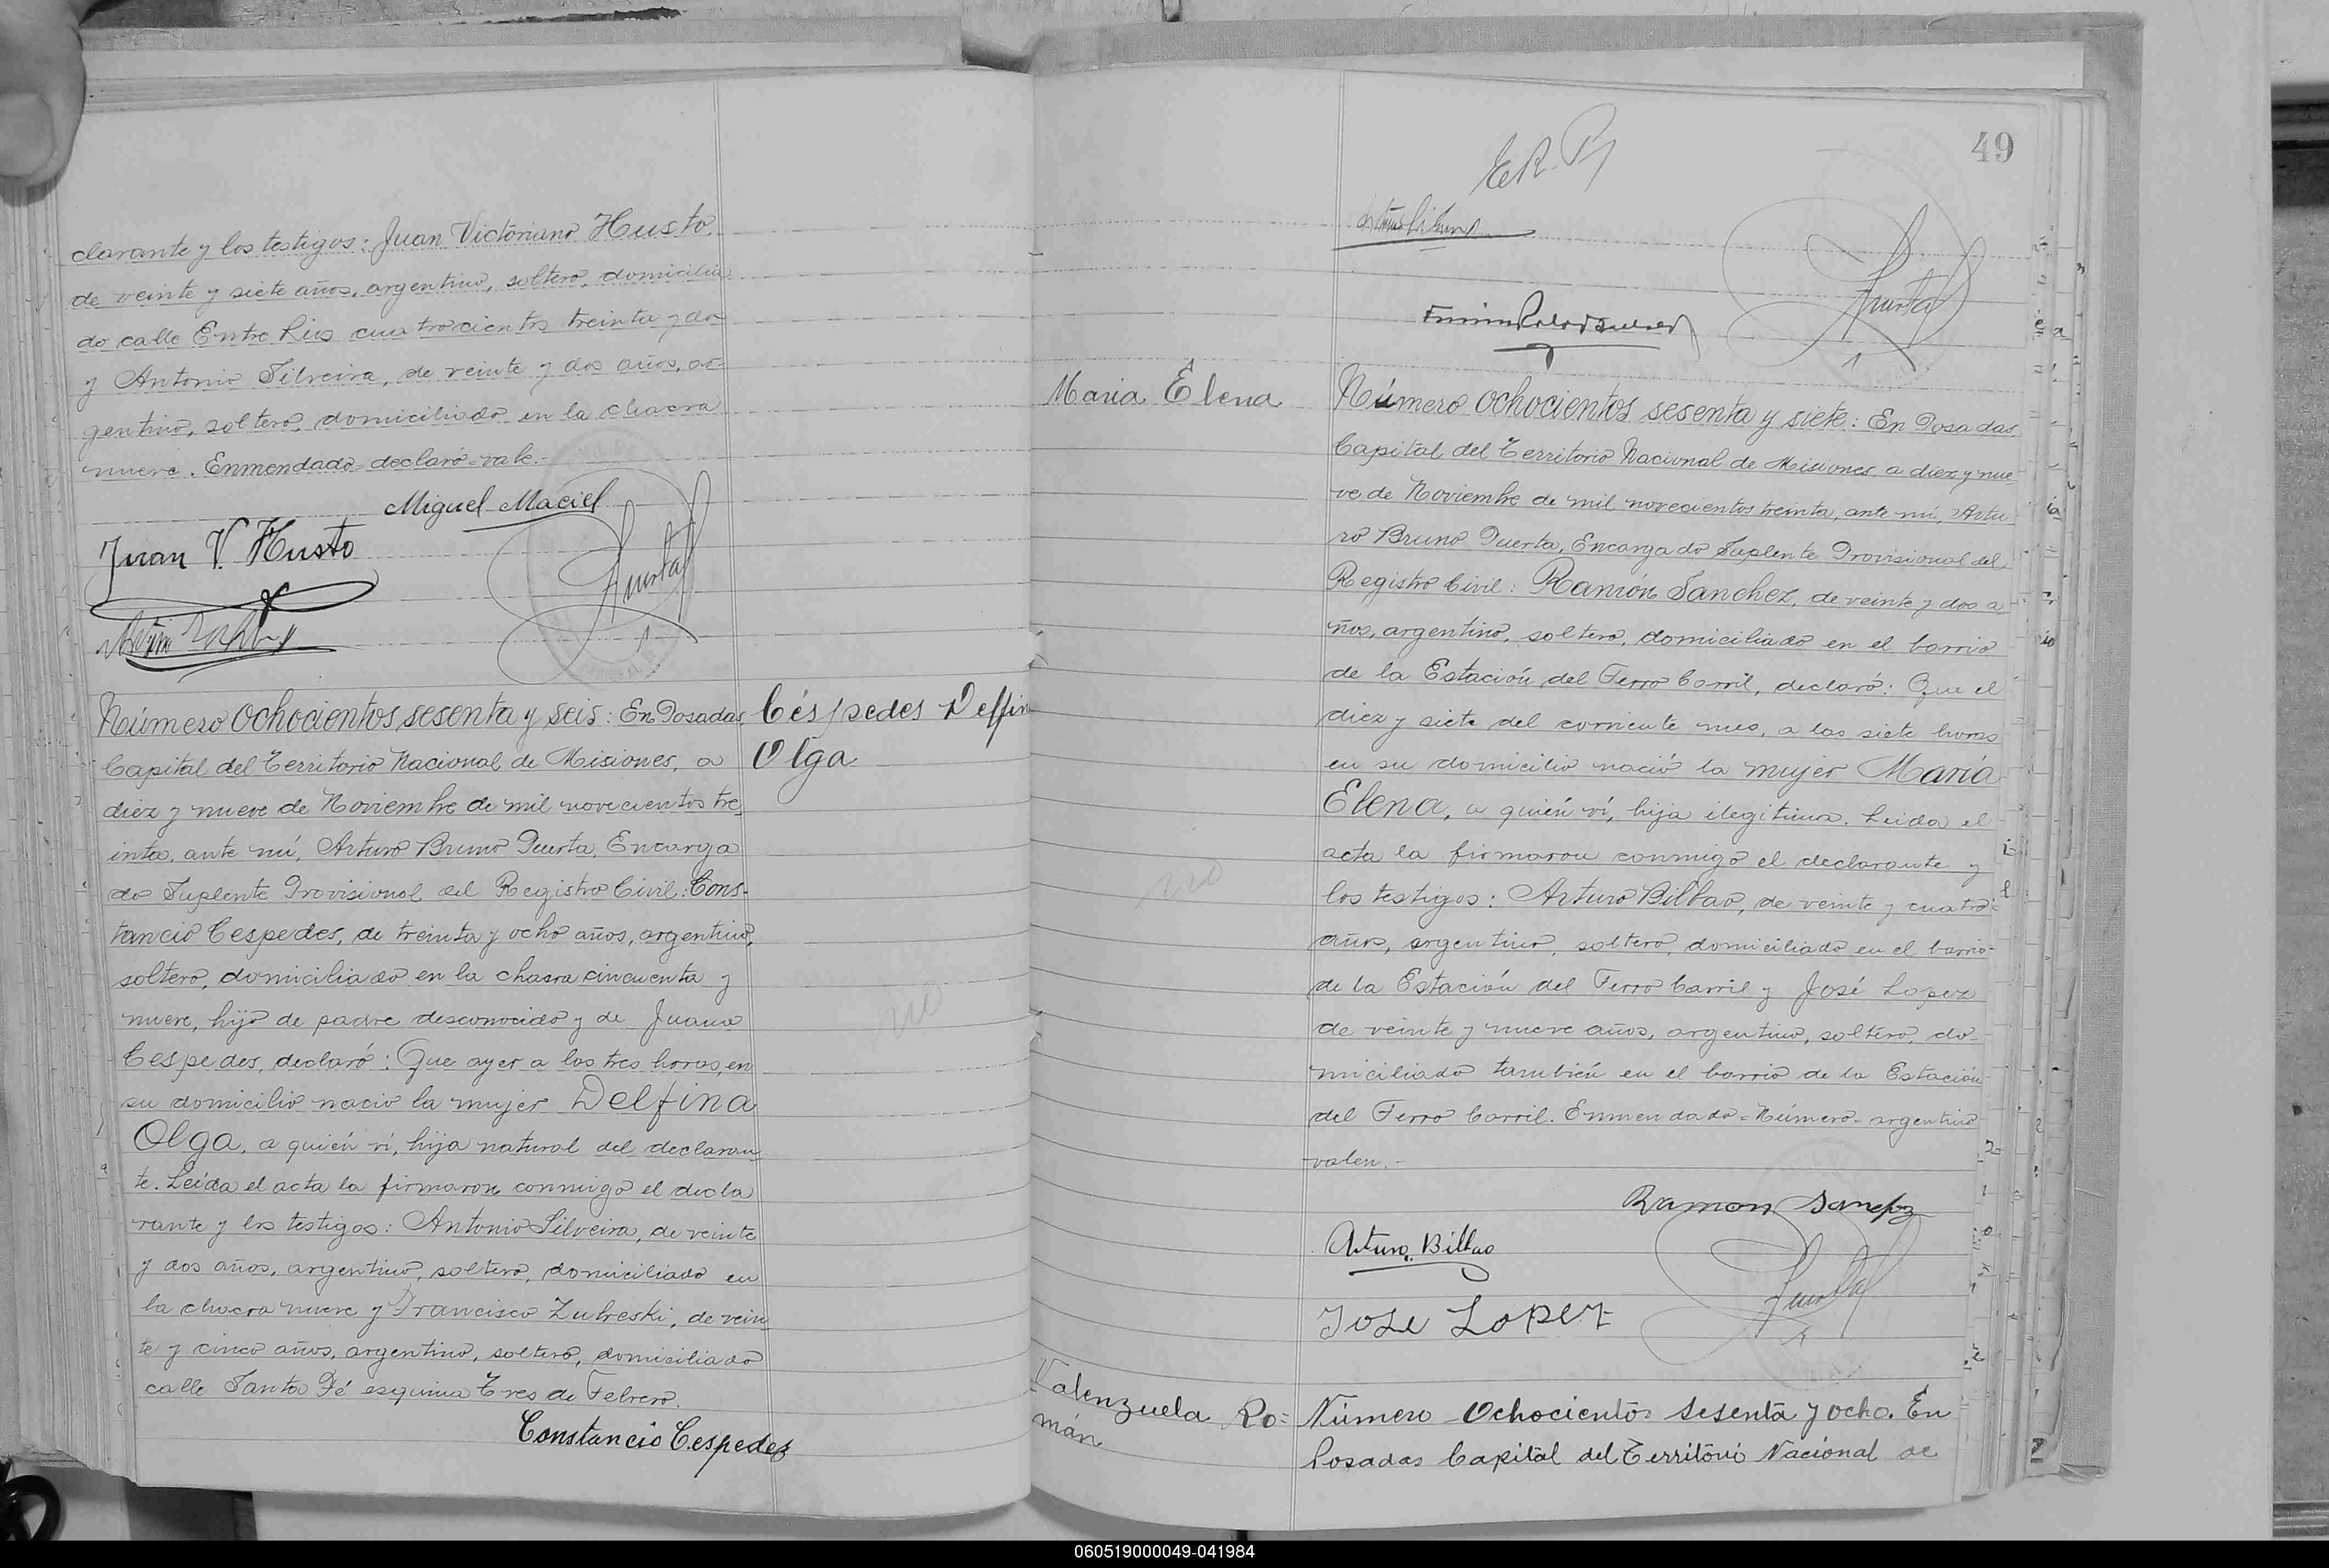 clarante y los testigos: Juan Victoriano Husto,
de veinte y siete años, argentino, soltero, domicilia
do calle Entre Rios cuatrocientos treinta y dos
y Antonio Silveira, de veinte y dos años, ar-
gentino, soltero, domiciliado en la chacra
nueve. Enmendado=declaró=vale.-
Miguel Maciel
Juan V. Husto
Puerta
Número ochocientos sesenta y seis: En Posadas
Capital del Territorio Nacional de Misiones, a
diez y nueve de Noviembre de mil novecientos tre
inta, ante mí, Arturo Bruno Puerta, Encarga
do Suplente Provisional del Registro Civil: Cons-
tancio Cespedes, de treinta y ocho años, argentino,
soltero, domiciliado en la chacra cincuenta y
nueve, hijo de padre desconocido y de Juana
Cespedes, declaró: Que ayer a las tres horas, en
su domicilio nació la mujer Delfina
Olga, a quién ví, hija natural del declaran
te. Leida el acta la firmaron conmigo el decla
rante y los testigos: Antonio Silveira, de veinte
y dos años, argentino, soltero, domiciliado en
la chacra nueve y Francisco Zubreski, de vein
te y cinco años, argentino, soltero, domiciliado
calle Santa Fé esquina Tres de Febrero.
Constancio Cespedes
Céspedes Delfin
Olga
no
49
E.R.P.
Arturo Bilbao
Puerta
Maria Elena
no
Número ochocientos sesenta y siete: En Posadas
Capital del Territorio Nacional de Misiones, a diez y nue-
ve de Noviembre de mil novecientos treinta, ante mí, Artu-
ro Bruno Puerta, Encargado Suplente Provisional del
Registro Civil: Ramón Sanchez, de veinte y dos a
ños, argentino, soltero, domiciliado en el barrio
de la Estación del Ferro Carril, declaró: Que el
diez y siete del corriente mes, a las siete horas
en su domicilio nació la mujer María
Elena, a quién ví, hija ilegitima. Leida el
acta la firmaron conmigo el declarante y
los testigos: Arturo Bilbao, de veinte y cuatro
años, argentino, soltero, domiciliado en el barrio
de la Estación del Ferro Carril y José Lopez
de veinte y nueve años, argentino, soltero, do-
miciliado también en el barrio de la Estación
del Ferro Carril. Enmendado=Número=argentino
valen.-
Ramon Sanchez
Arturo Bilbao
Puerta
Jose Lopez
Valenzuela Ro=
mán
Número Ochocientos sesenta y ocho. En
Posadas Capital del Territorio Nacional de
060519000049-041984